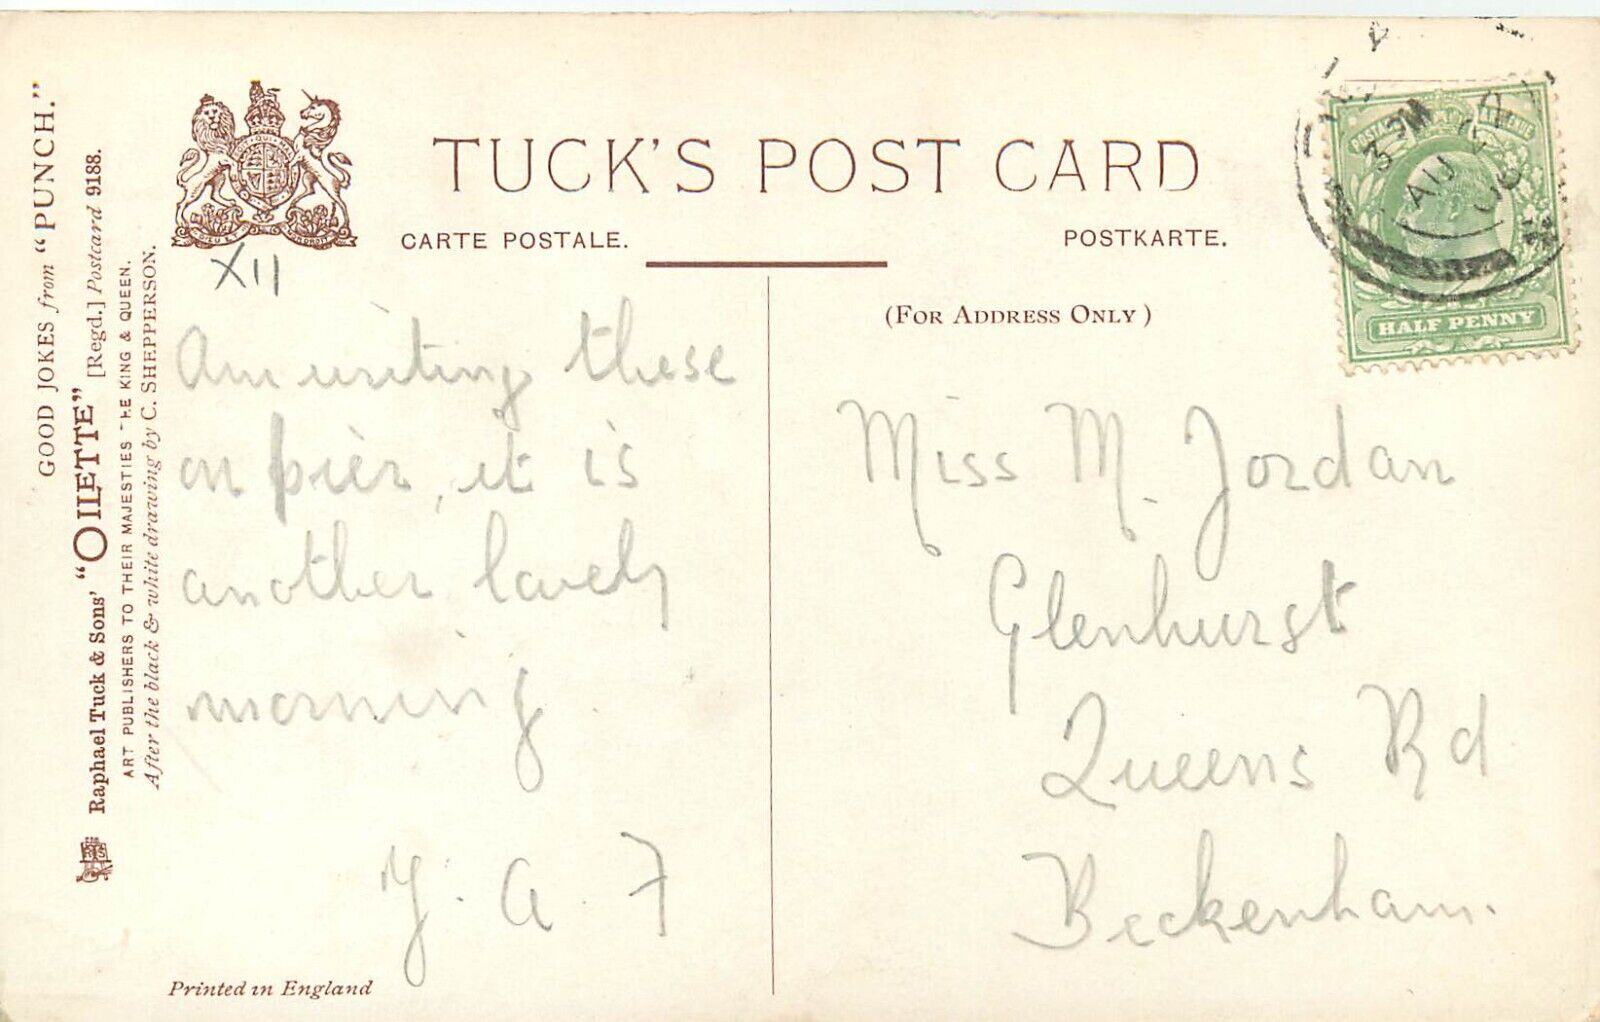 GOOD JOKES from "PUNCH."
Raphael Tuck & Sons' "OILETTE" [Regd.] Postcard 9188.
ART PUBLISHERS TO THEIR MAJESTIES THE KING & QUEEN.
After the black & white drawing by C. SHEPPERSON.
TUCK'S POST CARD
CARTE POSTALE.
POSTKARTE.
(FOR ADDRESS ONLY)
POSTAGE REVENUE
HALF PENNY
XII
Am writing these
on pier, it is
another lovely
morning
Y. A. F
Miss M. Jordan
Glenhurst
Queens Rd
Beckenham.
Printed in England